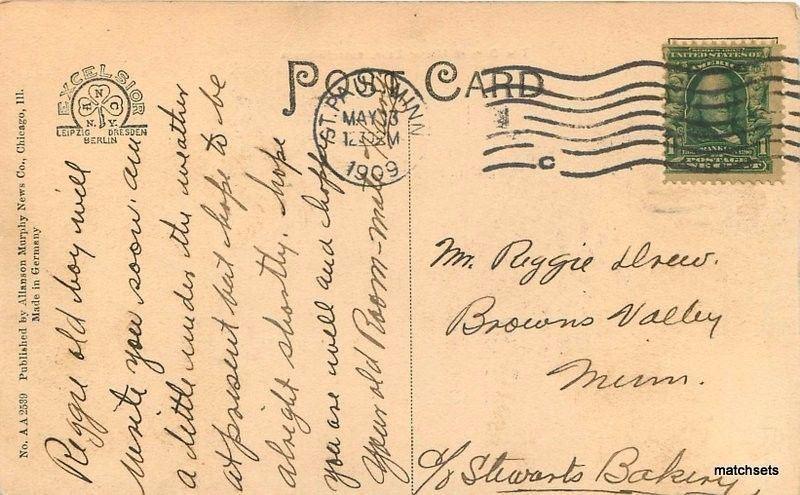 POST CARD
EXCELSIOR
ANCO
N.Y.
LEIPZIG DRESDEN
BERLIN
No. A A 2539 Published by Allanson Murphy News Co., Chicago, Ill.
Made in Germany
ST. PAUL, MINN
MAY 13
1909
1
C
SERIES 1902
UNITED STATES OF
AMERICA
FRANKLIN
1 1
POSTAGE
ONE CENT
Reggie old boy will
write you soon. am
a little under the weather
at present but hope to be
alright shortly. hope
you are well and happy
your old Room-mate
Mr. Reggie Drew.
Browns Valley
Minn.
c/o Stewarts Bakery
matchsets